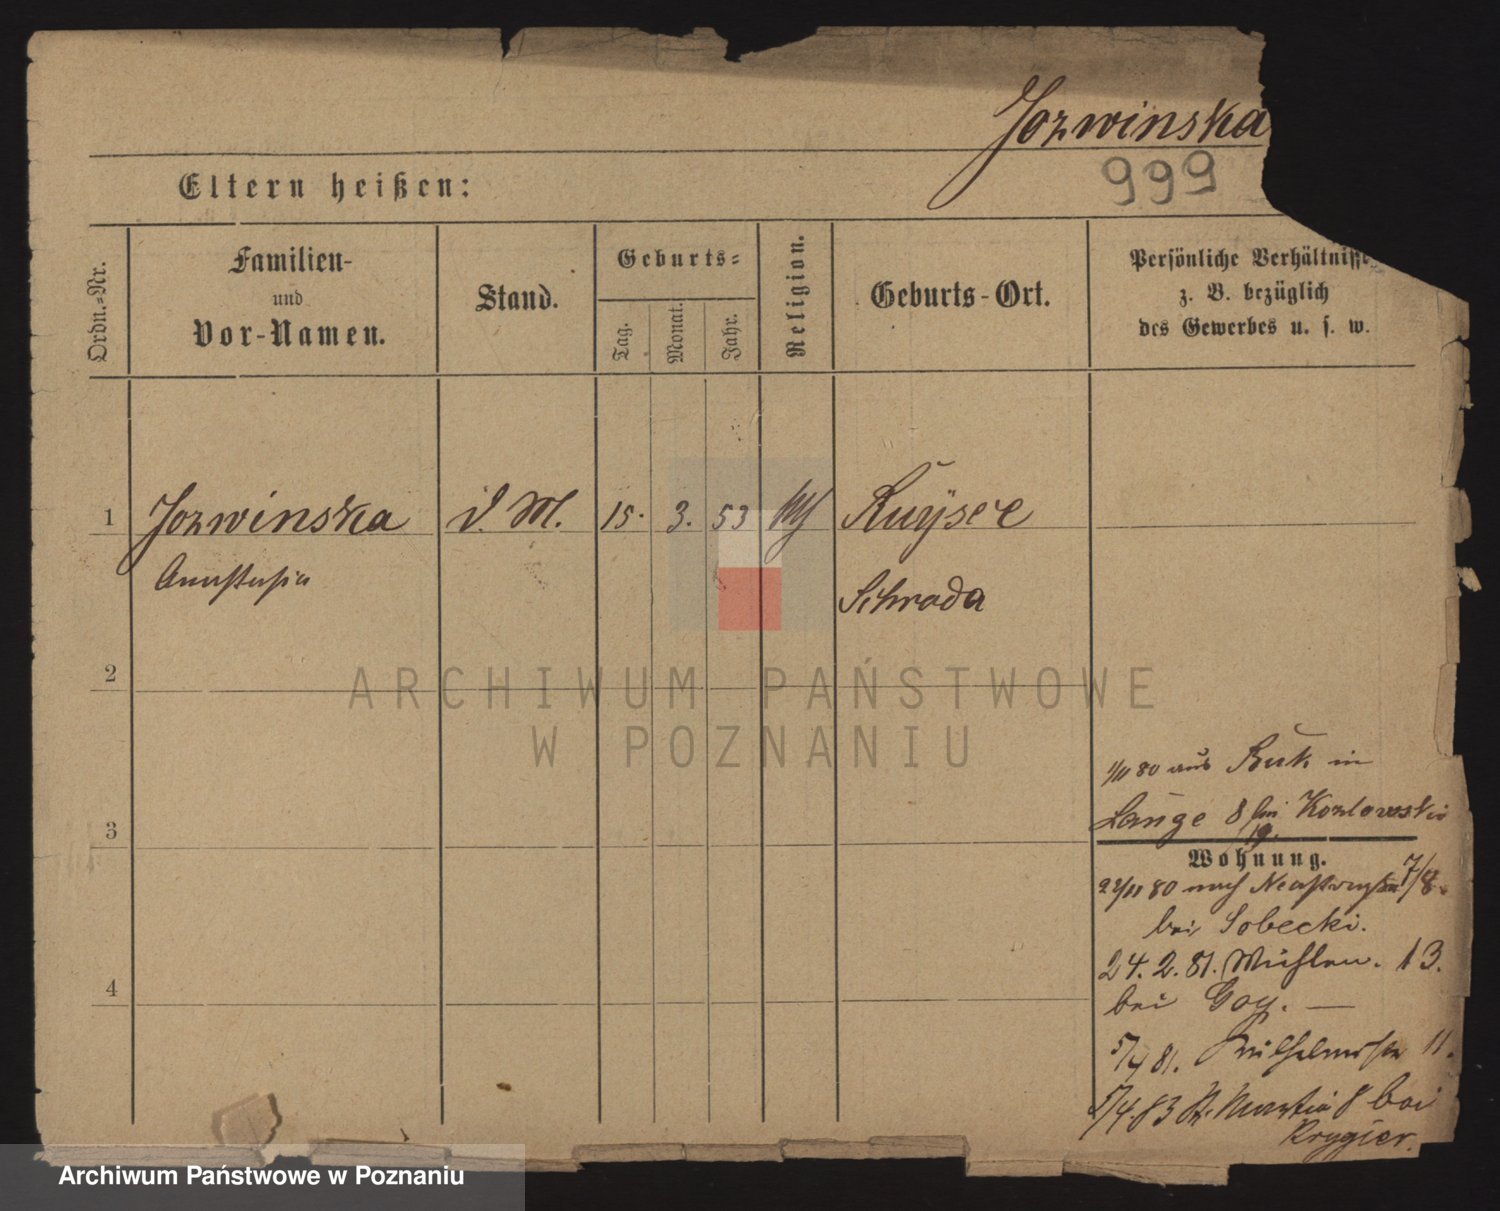 Jozwinska
999
Eltern heißen:
Ordn.-Nr.
Familien-
und
Vor-Namen.
Stand.
Geburts-
Tag.
Monat.
Jahr.
Religion.
Geburts-Ort.
Persönliche Verhältnisse
z. B. bezüglich
des Gewerbes u. s. w.
1 Jozwinska d. M. 15. 3. 53
Anastasia
Schroda
2
ARCHIWUM PAŃSTWOWE
W POZNANIU
80 aus Buk in
3
Lange 8 bei Kozlowski
19.
Wohnung.
22/11 80 nach 7/8.
bei Sobecki.
24. 2. 81. Mühlen. 13.
4
bei Goy. —
5/4 81. Wilhelmstr 11.
5/4.83 St. Martin 8 bei
Krygier.
Archiwum Państwowe w Poznaniu